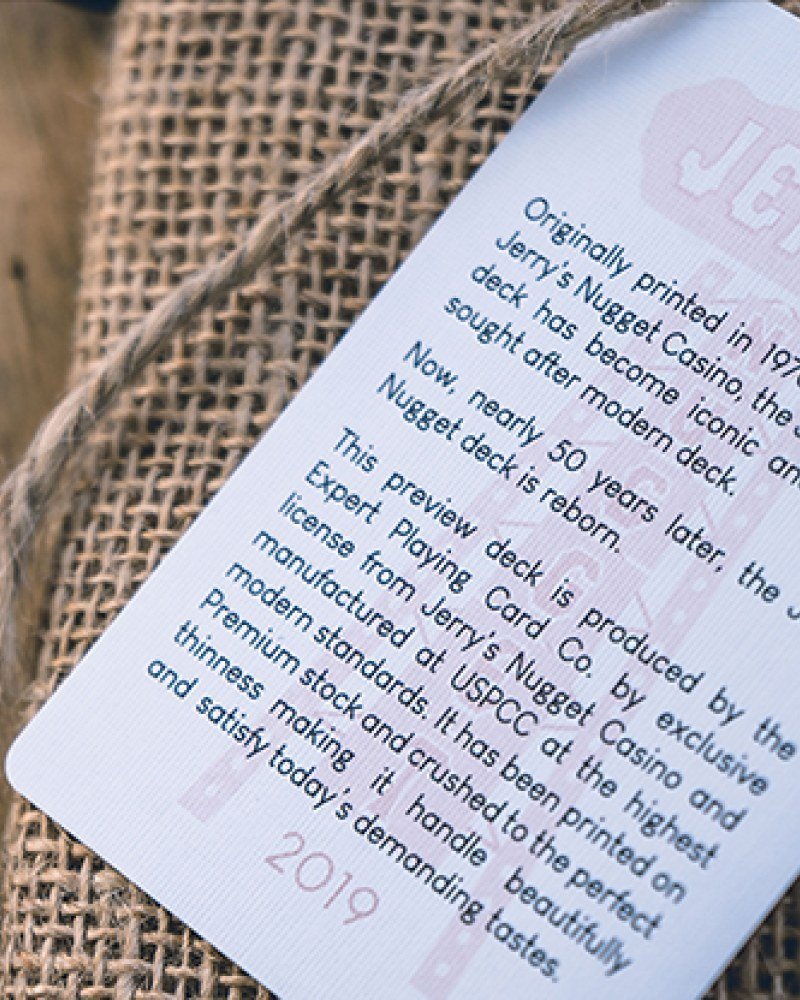 JE
Originally printed in 197
Jerry's Nugget Casino, the
deck has become iconic an
sought after modern deck.
Now, nearly 50 years later, the J
Nugget deck is reborn.
This preview deck is produced by the
Expert Playing Card Co. by exclusive
license from Jerry's Nugget Casino and
manufactured at USPCC at the highest
modern standards. It has been printed on
Premium stock and crushed to the perfect
thinness making it handle beautifully
and satisfy today's demanding tastes.
2019